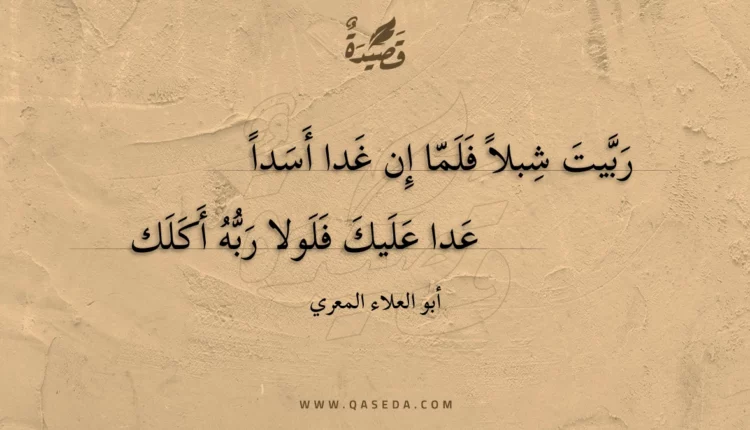 قَصِيدَةٌ
رَبَّيتَ شِبلاً فَلَمّا إِن غَدا أَسَداً
عَدا عَلَيكَ فَلَولا رَبُّهُ أَكَلَك
أبو العلاء المعري
WWW.QASEDA.COM